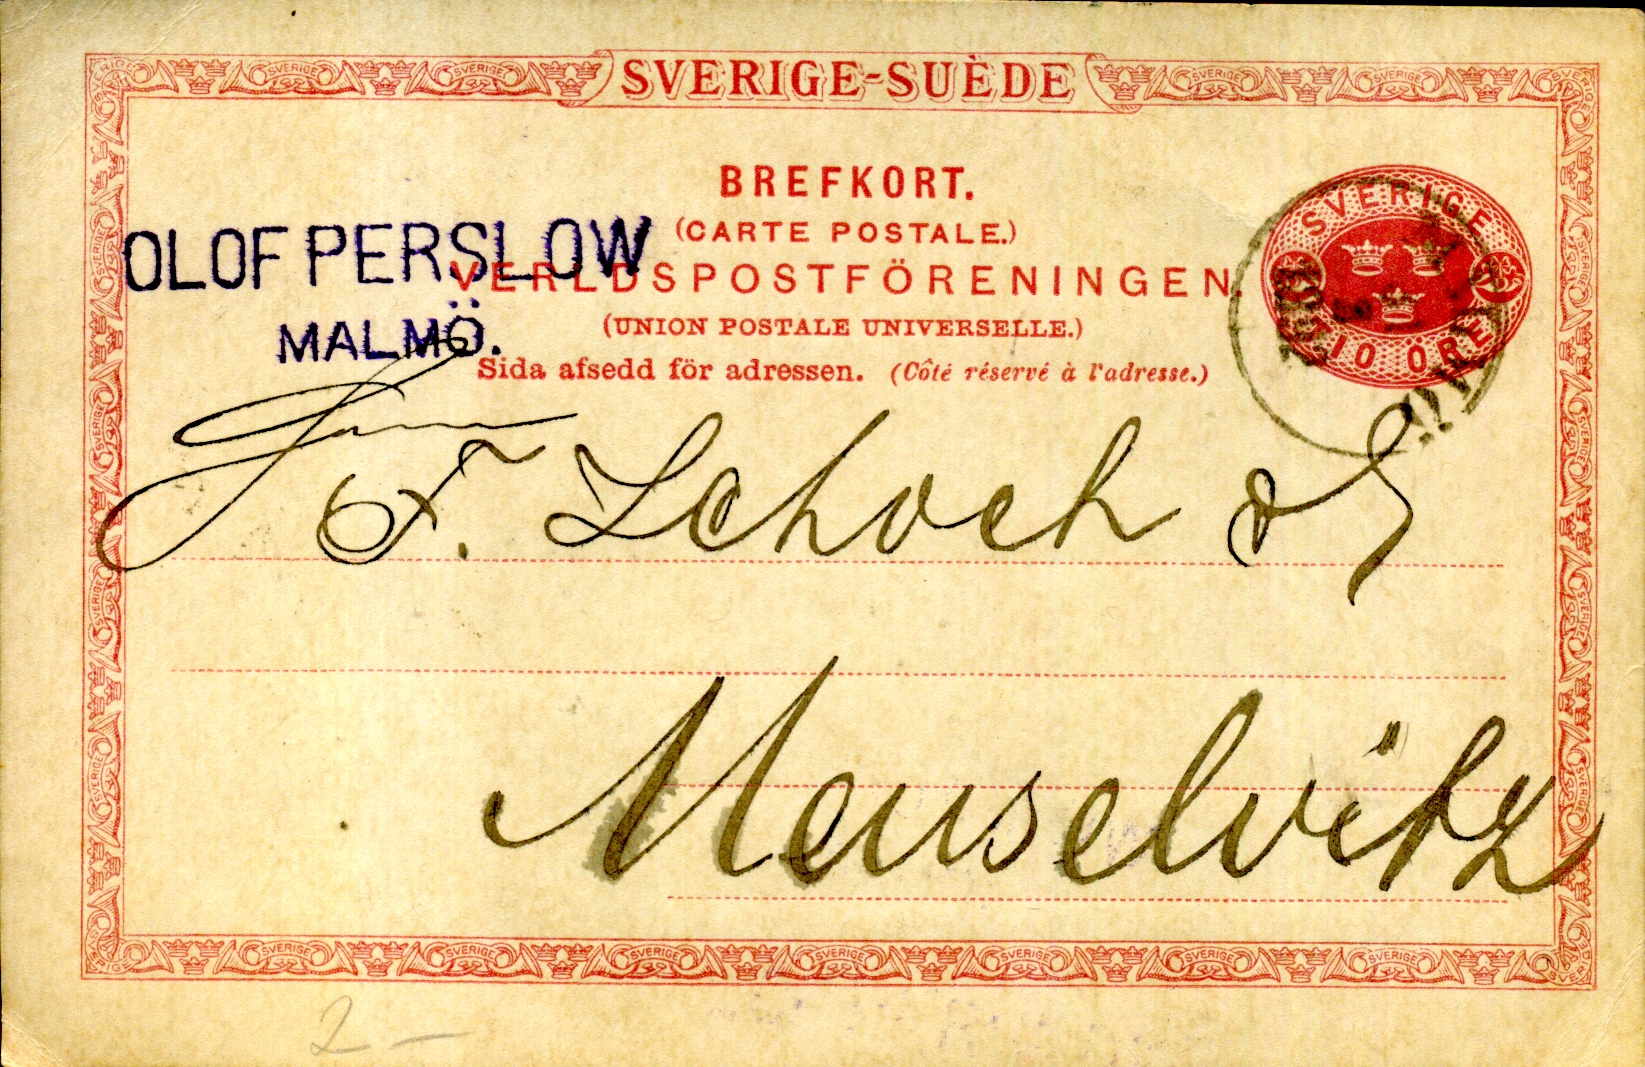 SVERIGE-SUÈDE
BREFKORT.
(CARTE POSTALE.)
VERLDSPOSTFÖRENINGEN
(UNION POSTALE UNIVERSELLE.)
Sida afsedd för adressen. (Côté réservé à l'adresse.)
SVERIGE
10 ÖRE
OLOF PERSLOW
MALMÖ.
F. Schoch
Meuselwitz
2-